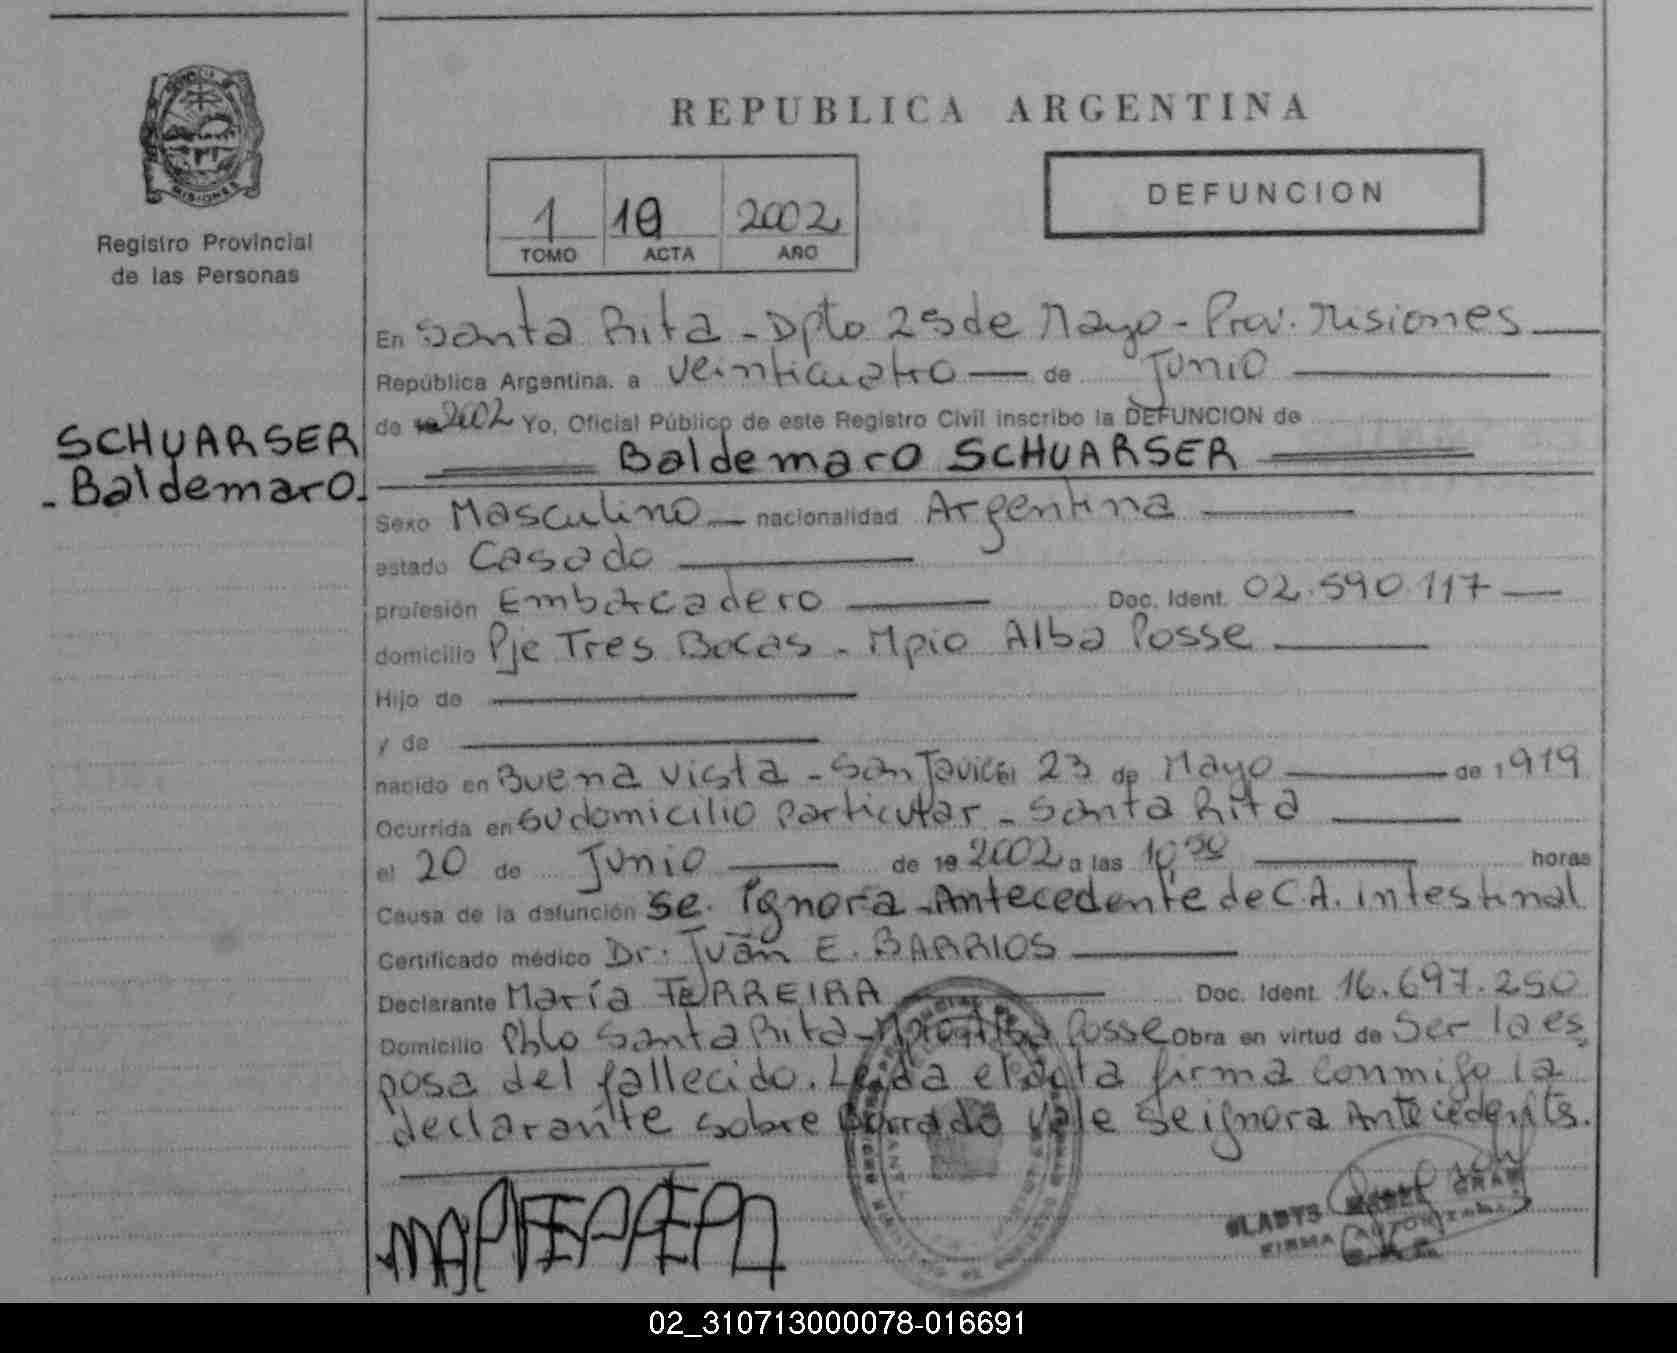 MISIONES
Registro Provincial
de las Personas
SCHUARSER
- Baldemaro.
REPUBLICA ARGENTINA
1 10 2002
TOMO ACTA AÑO
DEFUNCION
En Santa Rita - Dpto 25 de Mayo - Prov. Misiones
República Argentina, a veinticuatro — de Junio
de 2002 Yo, Oficial Público de este Registro Civil inscribo la DEFUNCION de
Baldemaro SCHUARSER
Sexo Masculino — nacionalidad Argentina
estado Casado
profesión Embarcadero Doc. Ident. 02.590.117 —
domicilio Pje Tres Bocas - Mpio Alba Posse
Hijo de
y de
nacido en Buena vista - San Javier 23 de Mayo de 1919
Ocurrida en su domicilio particular - Santa Rita
el 20 de Junio de 19 2002 a las 10, horas
Causa de la defunción se. Ignora - Antecedente de C.A. intestinal
Certificado médico Dr. Juan E. BARRIOS
Declarante María FERREIRA Doc. Ident. 16.697.250
Domicilio Pblo Santa Rita - Mpio Alba Posse Obra en virtud de Ser la es
posa del fallecido. Leída el acta firma conmigo la
declarante sobre borrado vale se ignora Antecedents.
GLADYS MABEL
FIRMA AUTORIZADA
02_310713000078-016691